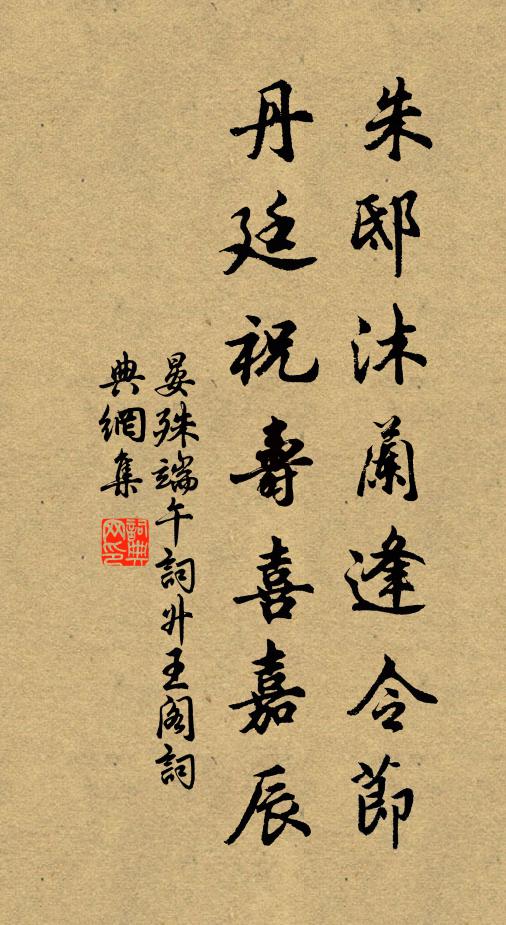 朱邸沐蘭逢令節
丹廷祝壽喜嘉辰
晏殊端午詞升王閣詞
典網集
詞典網印